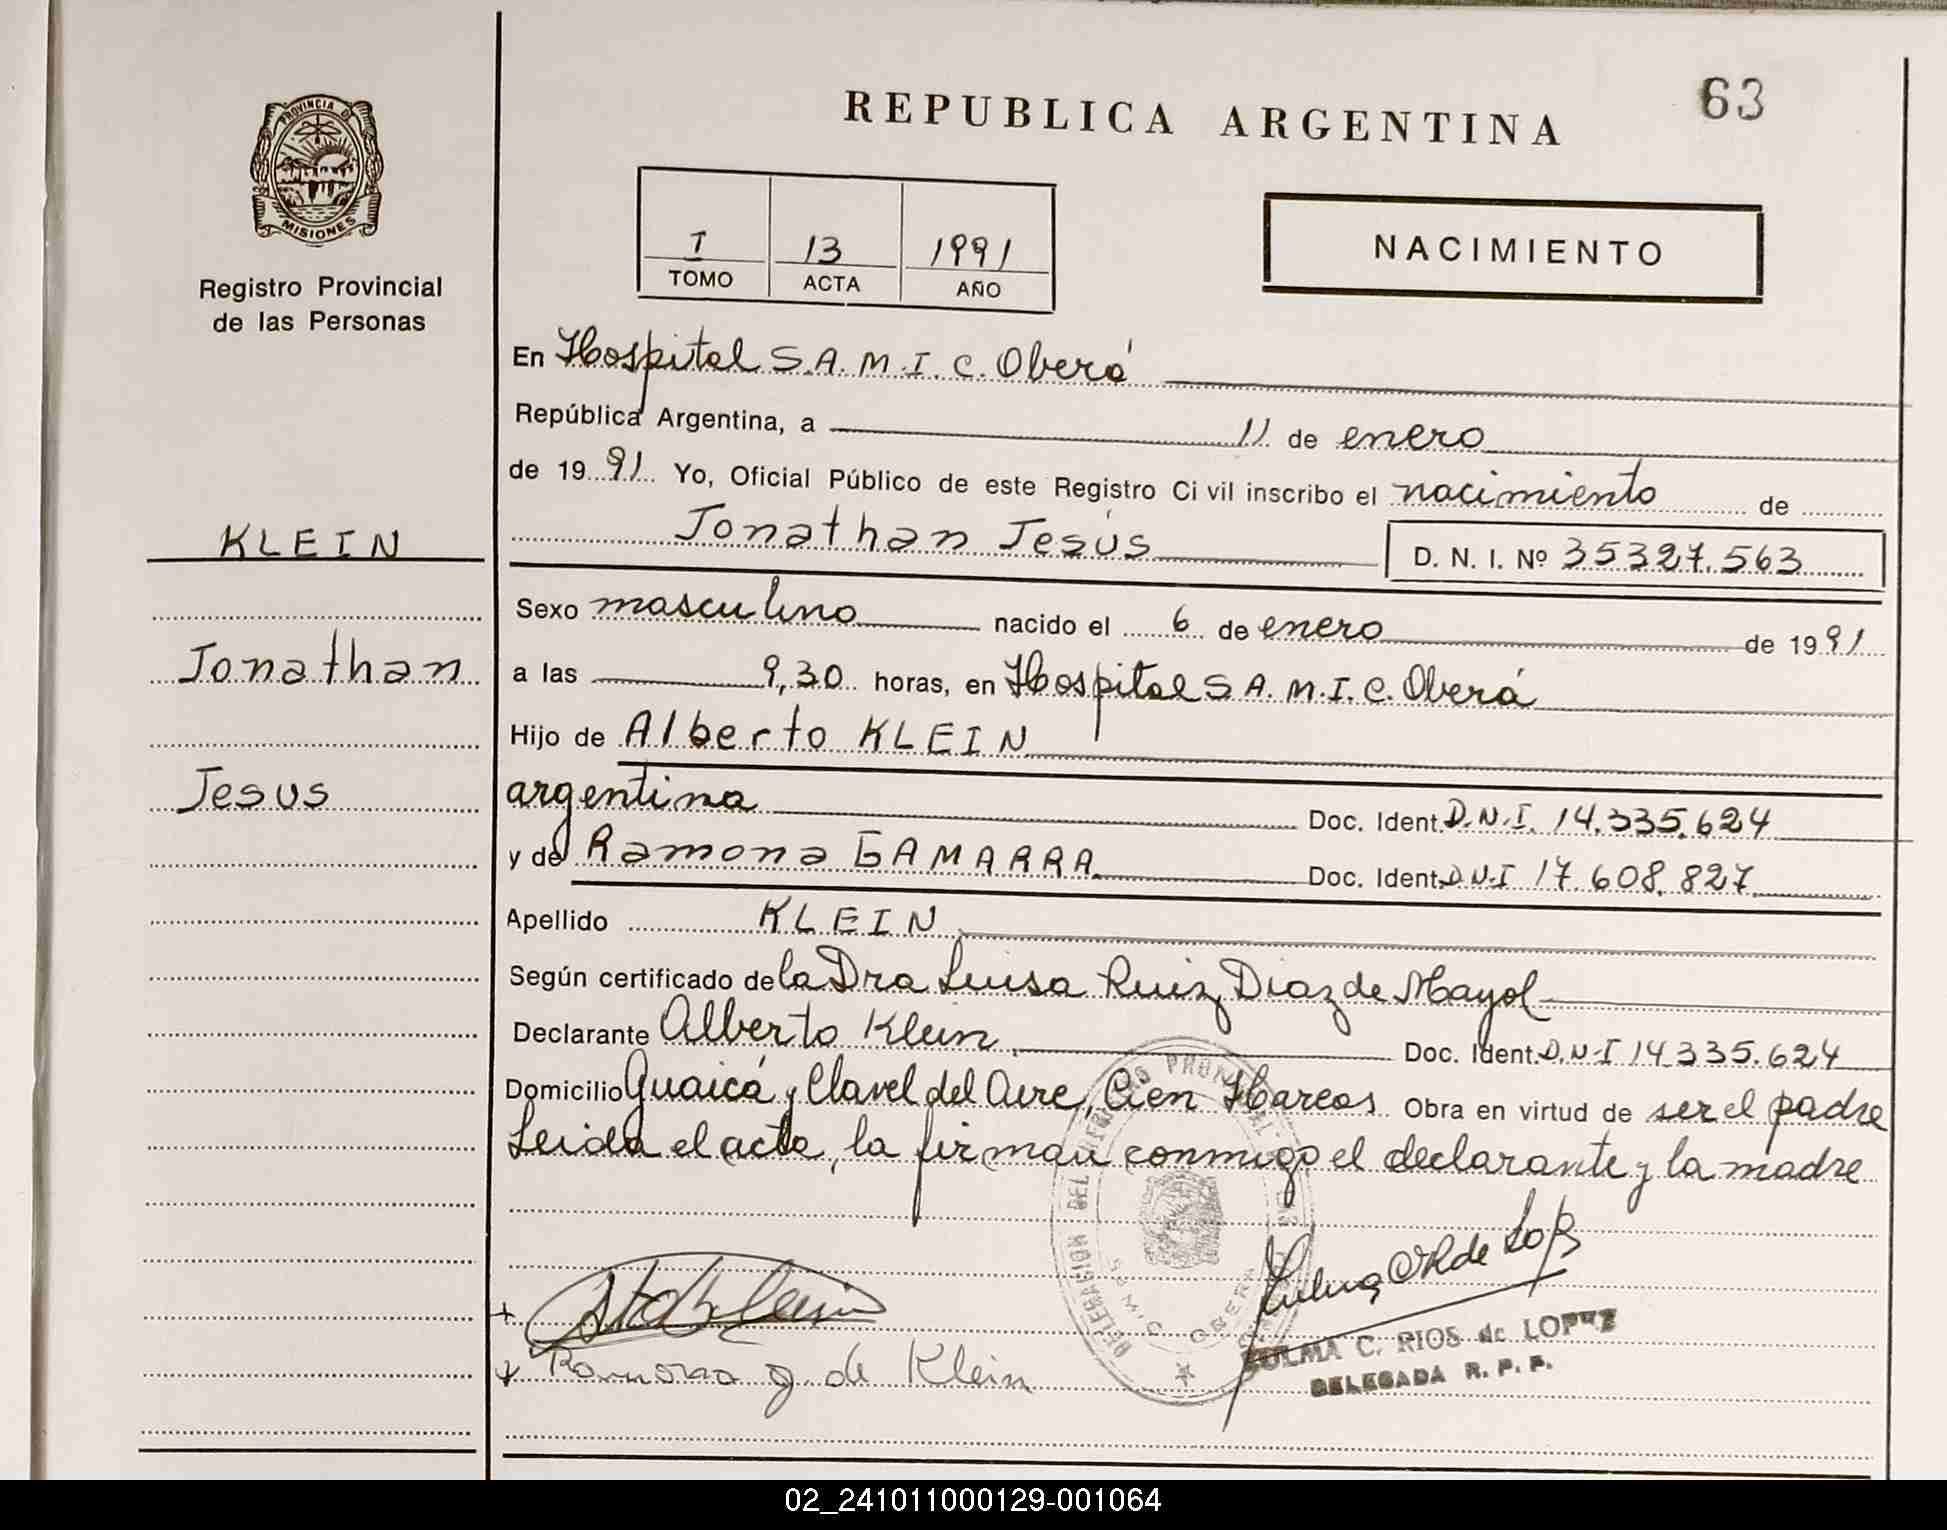 63
REPUBLICA ARGENTINA
PROVINCIA DE
MISIONES
Registro Provincial
de las Personas
I 13 1991
TOMO ACTA AÑO
NACIMIENTO
En Hospital S.A.M.I.C. Oberá
República Argentina, a 11 de enero
de 1991 Yo, Oficial Público de este Registro Civil inscribo el nacimiento de
Jonathan Jesús D. N. I. Nº 35327.563
KLEIN
Jonathan
Jesus
Sexo masculino nacido el 6 de enero de 1991
a las 9,30 horas, en Hospital S.A.M.I.C. Oberá
Hijo de Alberto KLEIN
argentina Doc. Ident. D.N.I. 14.335.624
y de Ramona GAMARRA Doc. Ident. D.N.I 17.608.827
Apellido KLEIN
Según certificado de la Dra Luisa Ruiz Diaz de Mayol
Declarante Alberto Klein Doc. Ident. D.N.I 14.335.624
Domicilio Guaicá y Clavel del Aire, Cien Hareas Obra en virtud de ser el padre
Leida el acta, la firman conmigo el declarante y la madre
DELEGACION DEL REGISTRO PROVINCIAL DE
OBERA
Ramona g. de Klein
ZULMA C. RIOS de LOPEZ
DELEGADA R. P. P.
02_241011000129-001064